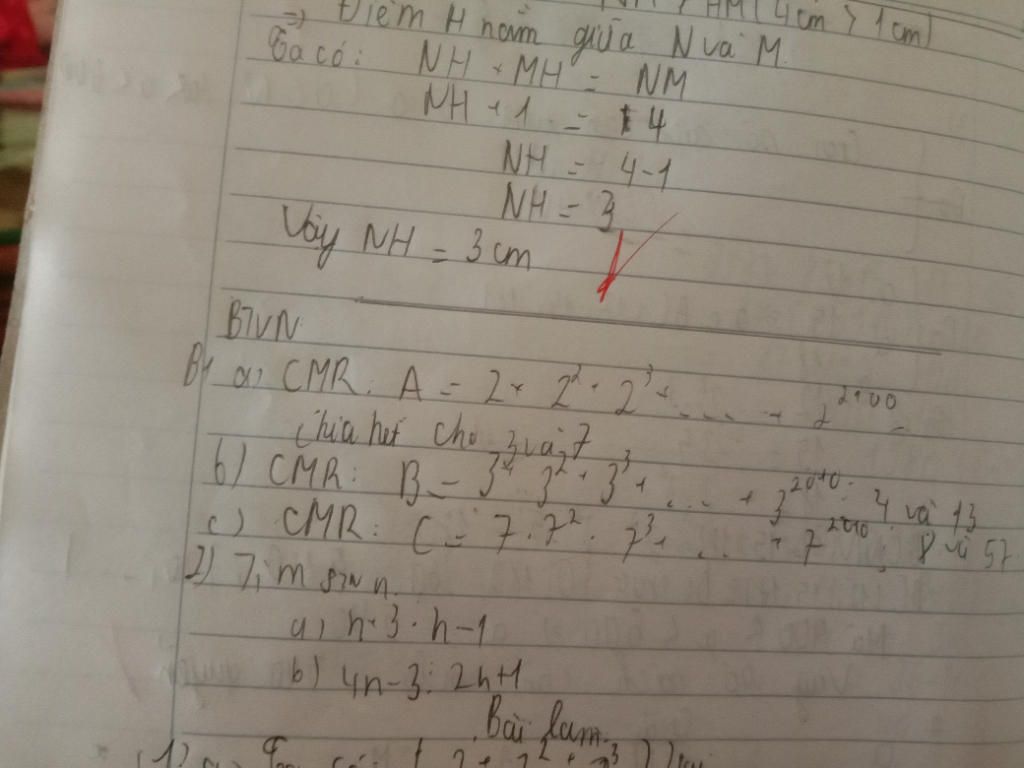 NM > HM (4cm > 1cm)
=> Điểm H nằm giữa N và M.
Ta có: NH + MH = NM
NH + 1 = 4
NH = 4-1
NH = 3
Vậy NH = 3 cm
BTVN
B1 a) CMR: A = 2 + 2² + 2³ + .... +
Chia hết cho 3 và 7
b) CMR: B = 3 + 3² + 3³ + ... + 3²⁰¹⁰ ⋮ 4 và 13
c) CMR: C = 7 + 7² + 7³ + ... + 7²⁰¹⁰ ⋮ 8 và 57
2) Tìm STN n.
a) n+3 ⋮ n-1
b) 4n-3 ⋮ 2n+1
Bài làm.